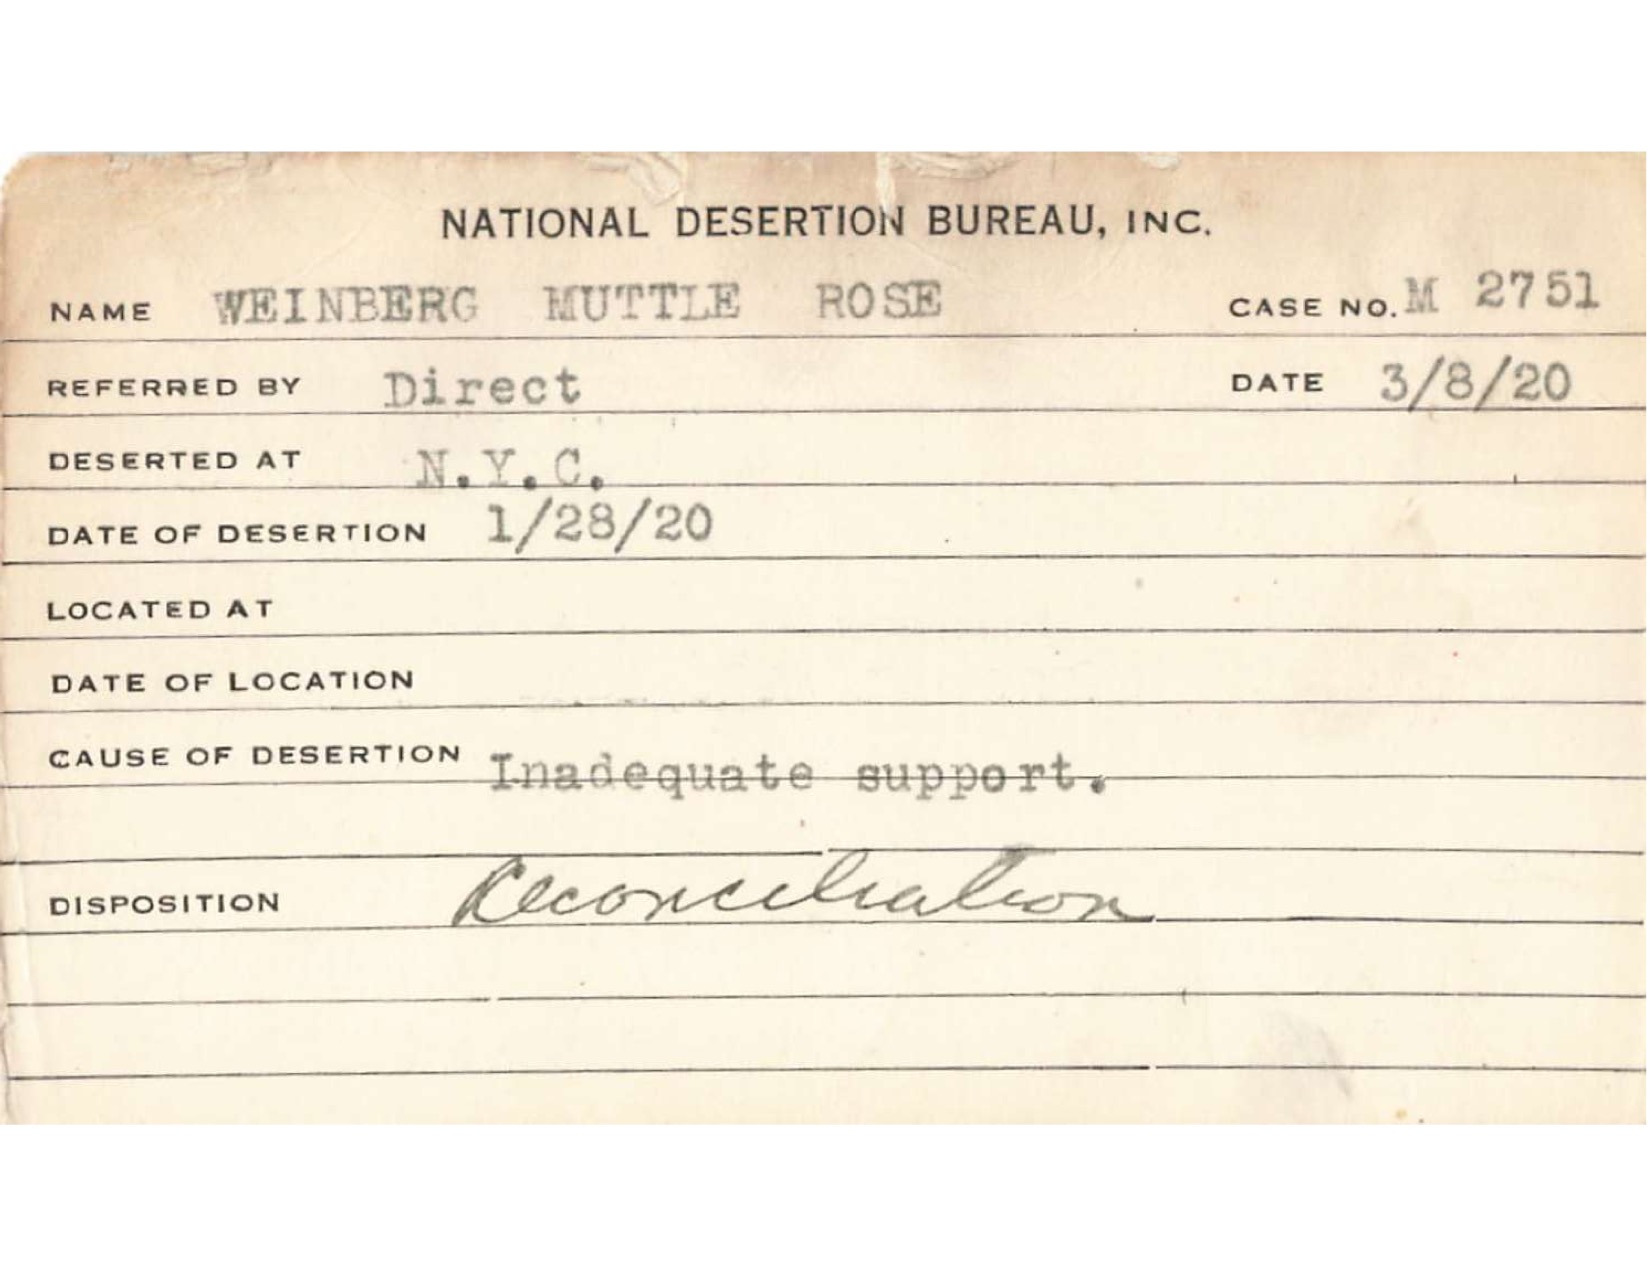 NATIONAL DESERTION BUREAU, INC.
NAME WEINBERG MUTTLE ROSE CASE NO. M 2751
REFERRED BY Direct DATE 3/8/20
DESERTED AT N.Y.C.
DATE OF DESERTION 1/28/20
LOCATED AT
DATE OF LOCATION
CAUSE OF DESERTION Inadequate support.
DISPOSITION Reconciliation